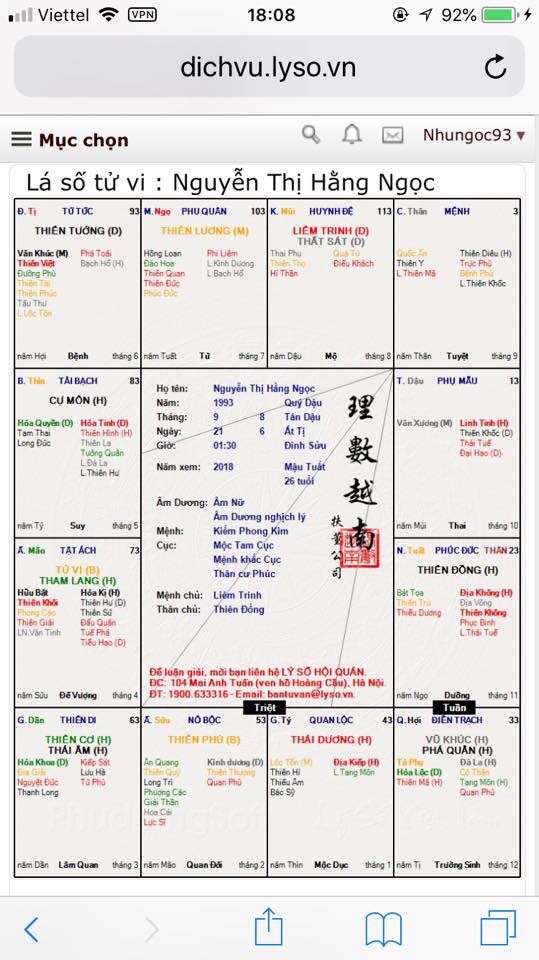 Viettel VPN 18:08 92%
dichvu.lyso.vn
Mục chọn Nhungoc93 ▾
Lá số tử vi : Nguyễn Thị Hằng Ngọc
Đ. Tị TỬ TỨC 93
THIÊN TƯỚNG (D)
Văn Khúc (M) Phá Toái
Thiên Việt Bạch Hổ (H)
Đường Phù
Thiên Tài
Thiên Phúc
Tấu Thư
L.Lộc Tồn
năm Hợi Bệnh tháng 6
M. Ngọ PHU QUÂN 103
THIÊN LƯƠNG (M)
Hồng Loan Phi Liêm
Đào Hoa L.Kình Dương
Thiên Quan L.Bạch Hổ
Thiên Đức
Phúc Đức
năm Tuất Tử tháng 7
K. Mùi HUYNH ĐỆ 113
LIÊM TRINH (D)
THẤT SÁT (D)
Thai Phụ Quả Tú
Thiên Thọ Điếu Khách
Hỉ Thần
năm Dậu Mộ tháng 8
C. Thân MỆNH 3
Quốc Ấn Thiên Diêu (H)
Thiên Y Trực Phù
L.Thiên Mã Bệnh Phù
L.Thiên Khốc
năm Thân Tuyệt tháng 9
B. Thìn TÀI BẠCH 83
CỰ MÔN (H)
Hóa Quyền (D) Hỏa Tinh (D)
Tam Thai Thiên Hình (H)
Long Đức Thiên La
Tướng Quân
L.Đà La
L.Thiên Hư
năm Tý Suy tháng 5
Họ tên: Nguyễn Thị Hằng Ngọc
Năm: 1993 Quý Dậu
Tháng: 9 8 Tân Dậu
Ngày: 21 6 Ất Tị
Giờ: 01:30 Đinh Sửu
Năm xem: 2018 Mậu Tuất
26 tuổi
Âm Dương: Âm Nữ
Âm Dương nghịch lý
Mệnh: Kiếm Phong Kim
Cục: Mộc Tam Cục
Mệnh khắc Cục
Thân cư Phúc
Mệnh chủ: Liêm Trinh
Thân chủ: Thiên Đồng
理數越南
Để luận giải, mời bạn liên hệ LÝ SỐ HỘI QUÁN.
ĐC: 104 Mai Anh Tuấn (ven hồ Hoàng Cầu), Hà Nội.
ĐT: 1900.633316 - Email: bantuvan@lyso.vn.
T. Dậu PHỤ MẪU 13
Văn Xương (M) Linh Tinh (H)
Thiên Khốc (D)
Thái Tuế
Đại Hao (D)
năm Mùi Thai tháng 10
Ấ. Mão TẬT ÁCH 73
TỬ VI (B)
THAM LANG (H)
Hữu Bật Hóa Kị (H)
Thiên Khôi Thiên Hư (D)
Phong Cáo Thiên Sứ
Thiên Giải Đẩu Quân
LN.Văn Tinh Tuế Phá
Tiểu Hao (D)
năm Sửu Đế Vượng tháng 4
N. Tuất PHÚC ĐỨC THÂN 23
THIÊN ĐỒNG (H)
Bát Tọa Địa Không (H)
Thiên Trù Địa Võng
Thiếu Dương Thiên Không
Phục Binh
L.Thái Tuế
năm Ngọ Dưỡng tháng 11
Triệt Tuần
G. Dần THIÊN DI 63
THIÊN CƠ (H)
THÁI ÂM (H)
Hóa Khoa (D) Kiếp Sát
Địa Giải Lưu Hà
Nguyệt Đức Tử Phù
Thanh Long
năm Dần Lâm Quan tháng 3
Ấ. Sửu NÔ BỘC 53
THIÊN PHỦ (B)
Ân Quang Kình dương (D)
Thiên Quý Thiên Thương
Long Trì Quan Phù
Phượng Các
Giải Thần
Hoa Cái
Lực Sĩ
năm Mão Quan Đới tháng 2
G. Tý QUAN LỘC 43
THÁI DƯƠNG (H)
Lộc Tồn (M) Địa Kiếp (H)
Thiên Hỉ L.Tang Môn
Thiếu Âm
Bác Sỹ
năm Thìn Mộc Dục tháng 1
Q. Hợi ĐIỀN TRẠCH 33
VŨ KHÚC (H)
PHÁ QUÂN (H)
Tả Phụ Đà La (H)
Hóa Lộc (D) Cô Thần
Thiên Mã (H) Tang Môn (H)
Quan Phủ
năm Tị Trường Sinh tháng 12